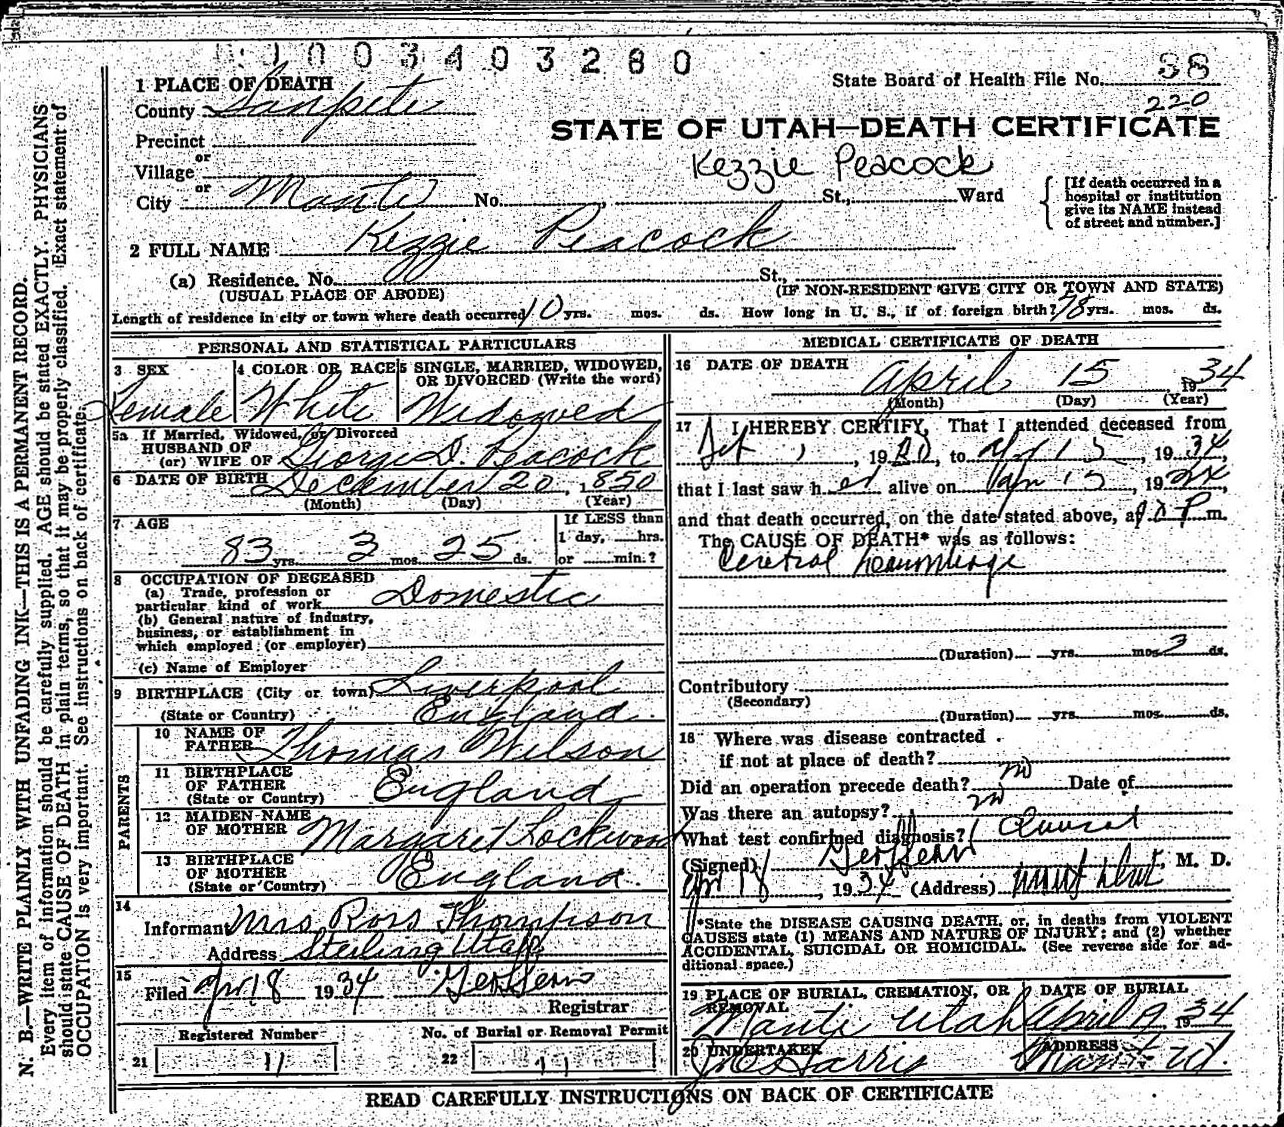 1003403280
State Board of Health File No. 38
220
STATE OF UTAH—DEATH CERTIFICATE
Kezzie Peacock
1 PLACE OF DEATH
County Sanpete
Precinct
or
Village
or
City Manti No. St., Ward
[If death occurred in a
hospital or institution
give its NAME instead
of street and number.]
2 FULL NAME Kezzie Peacock
(a) Residence. No. St.,
(USUAL PLACE OF ABODE) (IF NON-RESIDENT GIVE CITY OR TOWN AND STATE)
Length of residence in city or town where death occurred 10 yrs. mos. ds. How long in U. S., if of foreign birth? 78 yrs. mos. ds.
PERSONAL AND STATISTICAL PARTICULARS
3 SEX 4 COLOR OR RACE 5 SINGLE, MARRIED, WIDOWED,
OR DIVORCED (Write the word)
Female White Widowed
5a If Married, Widowed, or Divorced
HUSBAND OF
(or) WIFE OF George D. Peacock
6 DATE OF BIRTH December 20, 1850
(Month) (Day) (Year)
7 AGE If LESS than
1 day, hrs.
83 yrs. 3 mos. 25 ds. or min.?
8 OCCUPATION OF DECEASED
(a) Trade, profession or
particular kind of work Domestic
(b) General nature of industry,
business, or establishment in
which employed (or employer)
(c) Name of Employer
9 BIRTHPLACE (City or town) Liverpool
(State or Country) England.
PARENTS
10 NAME OF
FATHER Thomas Wilson
11 BIRTHPLACE
OF FATHER England
(State or Country)
12 MAIDEN NAME
OF MOTHER Margaret Lockwood
13 BIRTHPLACE
OF MOTHER England.
(State or Country)
14
Informant Mrs Ross Thompson
Address Sterling Utah
15
Filed Apr 18 1934
Registrar
Registered Number No. of Burial or Removal Permit
21 11 22 11
MEDICAL CERTIFICATE OF DEATH
16 DATE OF DEATH April 15 1934
(Month) (Day) (Year)
17 I HEREBY CERTIFY, That I attended deceased from
, 19 , to Apr 15, 1934,
that I last saw her alive on Apr 15, 19
and that death occurred, on the date stated above, at P m.
The CAUSE OF DEATH* was as follows:
Cerebral hemorrhage
(Duration) yrs. mos. 3 ds.
Contributory
(Secondary)
(Duration) yrs. mos. ds.
18 Where was disease contracted
if not at place of death?
Did an operation precede death? no Date of
Was there an autopsy? no
What test confirmed diagnosis? Clinical
(Signed) , M. D.
Apr 18, 1934 (Address)
*State the DISEASE CAUSING DEATH, or, in deaths from VIOLENT
CAUSES state (1) MEANS AND NATURE OF INJURY; and (2) whether
ACCIDENTAL, SUICIDAL OR HOMICIDAL. (See reverse side for ad-
ditional space.)
19 PLACE OF BURIAL, CREMATION, OR DATE OF BURIAL
REMOVAL
Manti Utah April 19, 1934
20 UNDERTAKER ADDRESS
Harris Manti Ut.
READ CAREFULLY INSTRUCTIONS ON BACK OF CERTIFICATE
N. B.—WRITE PLAINLY WITH UNFADING INK—THIS IS A PERMANENT RECORD.
Every item of information should be carefully supplied. AGE should be stated EXACTLY. PHYSICIANS
should state CAUSE OF DEATH in plain terms, so that it may be properly classified. Exact statement of
OCCUPATION is very important. See instructions on back of certificate.